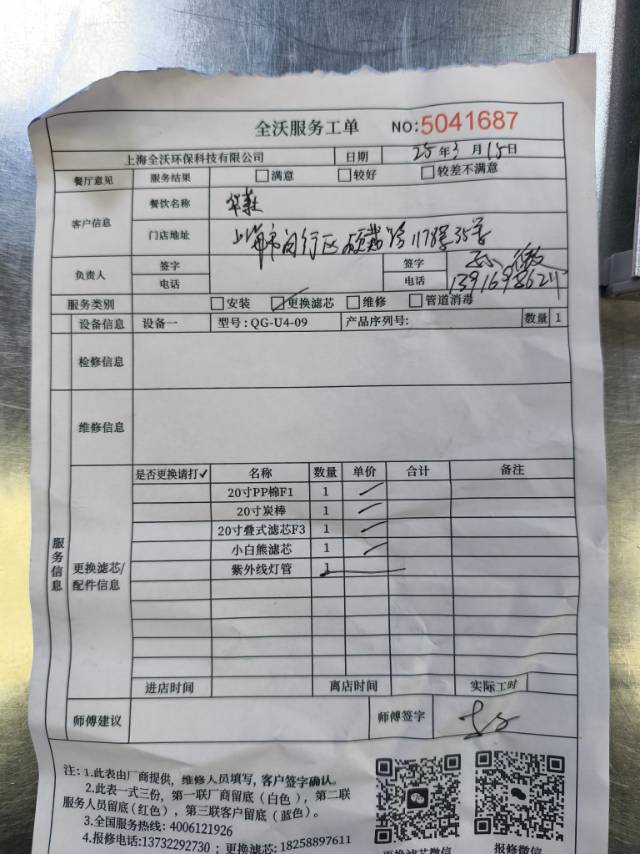 全沃服务工单 NO:5041687
上海全沃环保科技有限公司 日期 25年3月15日
餐厅意见 服务结果 满意 较好 较差不满意
客户信息 餐饮名称
门店地址 上海市闵行区 路1178号35号
负责人 签字 签字
电话 电话
服务类别 安装 更换滤芯 维修 管道消毒
设备信息 设备一 型号:QG-U4-09 产品序列号: 数量 1
检修信息
维修信息
服务信息
更换滤芯/
配件信息
是否更换请打✓ 名称 数量 单价 合计 备注
20寸PP棉F1 1
20寸炭棒 1
20寸叠式滤芯F3 1
小白熊滤芯 1
紫外线灯管 1
进店时间 离店时间 实际工时
师傅建议 师傅签字
注:1.此表由厂商提供，维修人员填写,客户签字确认。
2.此表一式三份，第一联厂商留底（白色），第二联
服务人员留底(红色)，第三联客户留底（蓝色）。
3.全国服务热线: 4006121926
4.报修电话:13732292730；更换滤芯: 18258897611
更换滤芯微信 报修微信